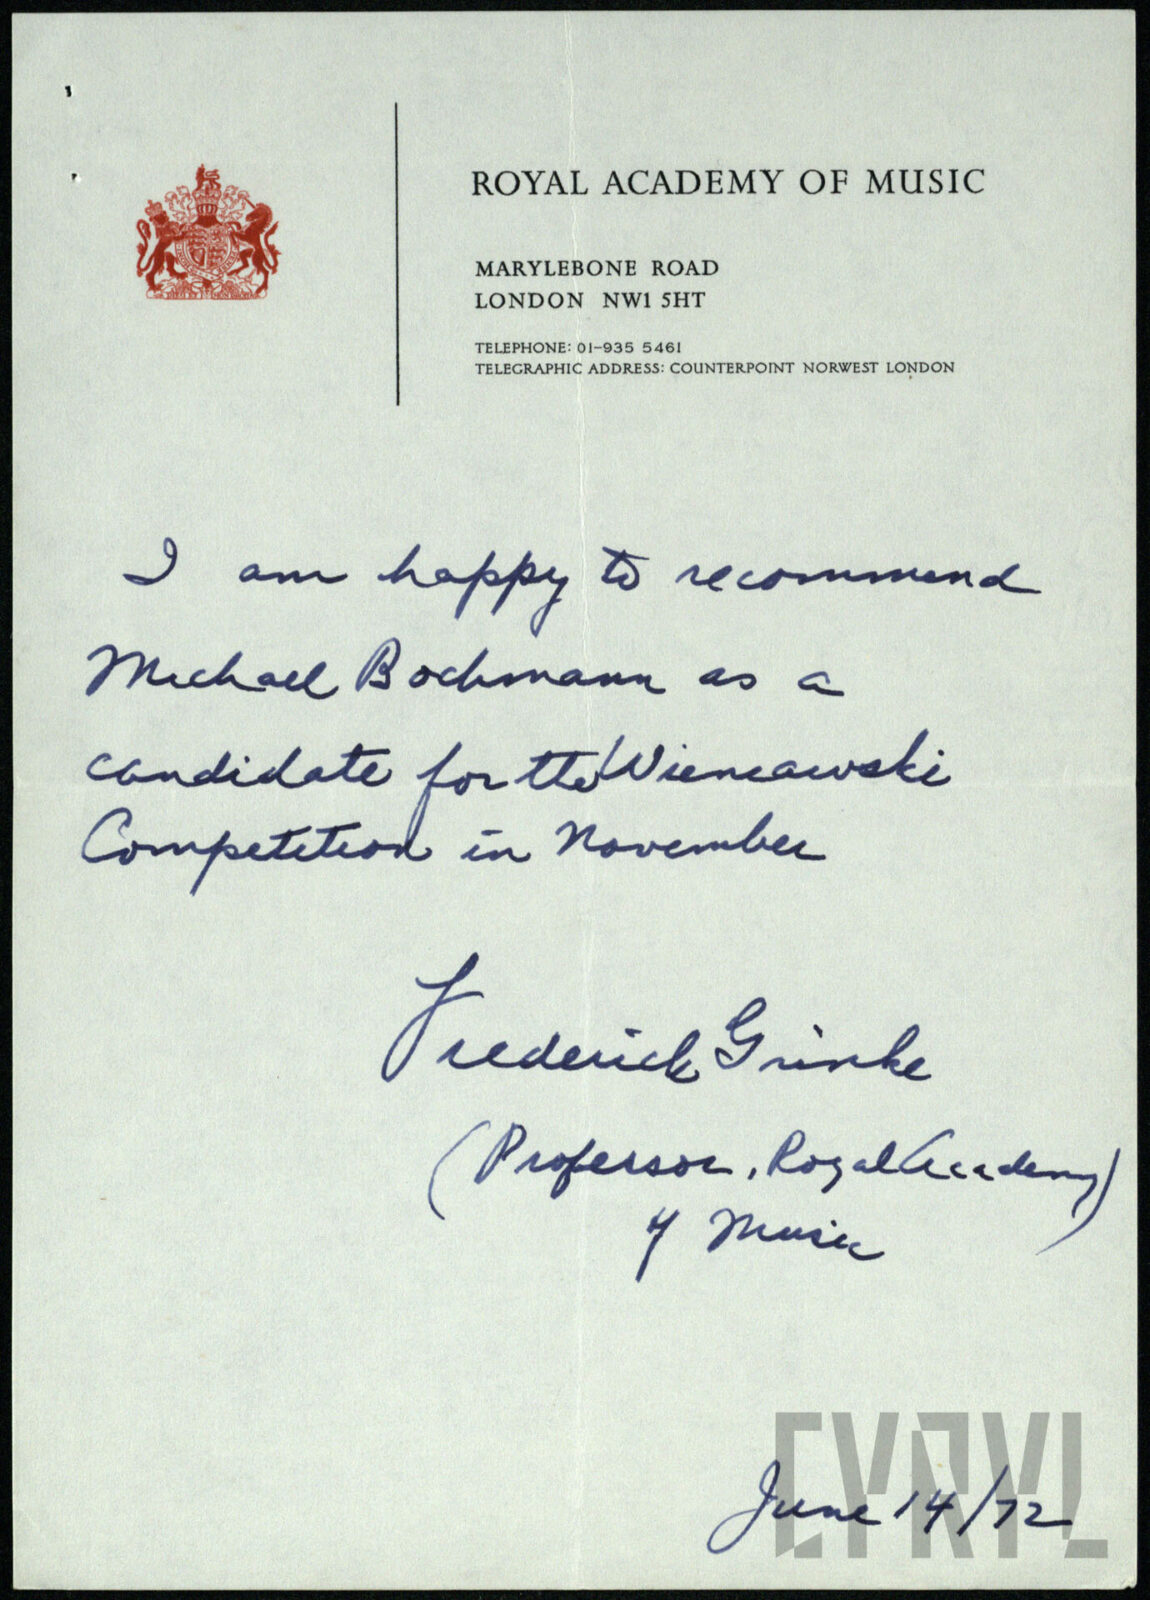 ROYAL ACADEMY OF MUSIC
MARYLEBONE ROAD
LONDON NW1 5HT
TELEPHONE: 01-935 5461
TELEGRAPHIC ADDRESS: COUNTERPOINT NORWEST LONDON
I am happy to recommend
Michael Bochmann as a
candidate for the Wieniawski
Competition in November
Frederick Grinke
(Professor, Royal Academy)
of Music
June 14/72
CYRYL